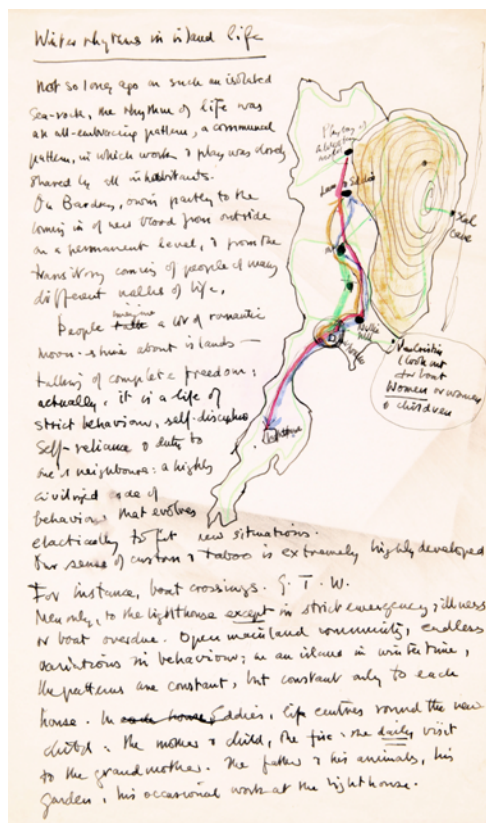 Winter rhythms in island life
Not so long ago on such an isolated
sea-rock, the rhythm of life was
an all-embracing pattern, a communal
pattern, in which work & play was closely
shared by all inhabitants.
On Bardsey, owing partly to the
coming in of new blood from outside
on a permanent level, & from the
transitory coming of people of many
different walks of life.
People talk a lot of romantic
moon-shine about islands –
talking of complete freedom;
actually, it is a life of
strict behaviour, self-discipline
self-reliance & duty to
one's neighbours: a highly
civilized code of
behaviour that evolves
elastically to fit new situations.
Our sense of custom & taboo is extremely highly developed
For instance, boat crossings. G. T. W.
Men only, to the lighthouse except in strict emergency; illness
or boat overdue. Open mainland community, endless
variations in behaviour; on an island in wintertime,
the patterns are constant, but constant only to each
house. In each house Eddies, life centres round the new
child: the mother & child, the fire: the daily visit
to the grandmother. The father & his animals, his
garden, his occasional work at the lighthouse.
Seal
cave
(look out
for boat
Women or women
& children